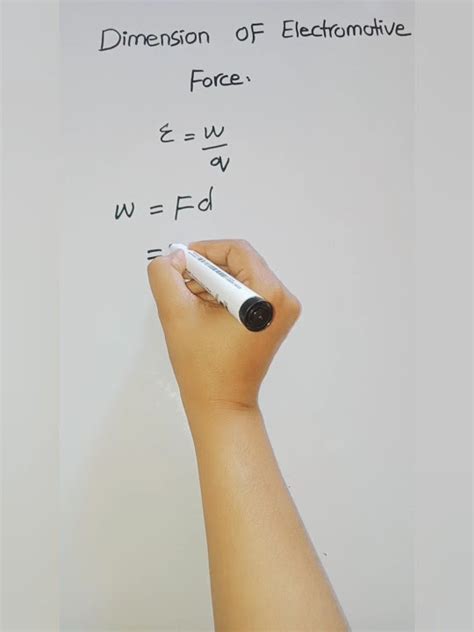 Dimension OF Electromotive
Force.
ε = w/q
w = Fd
=